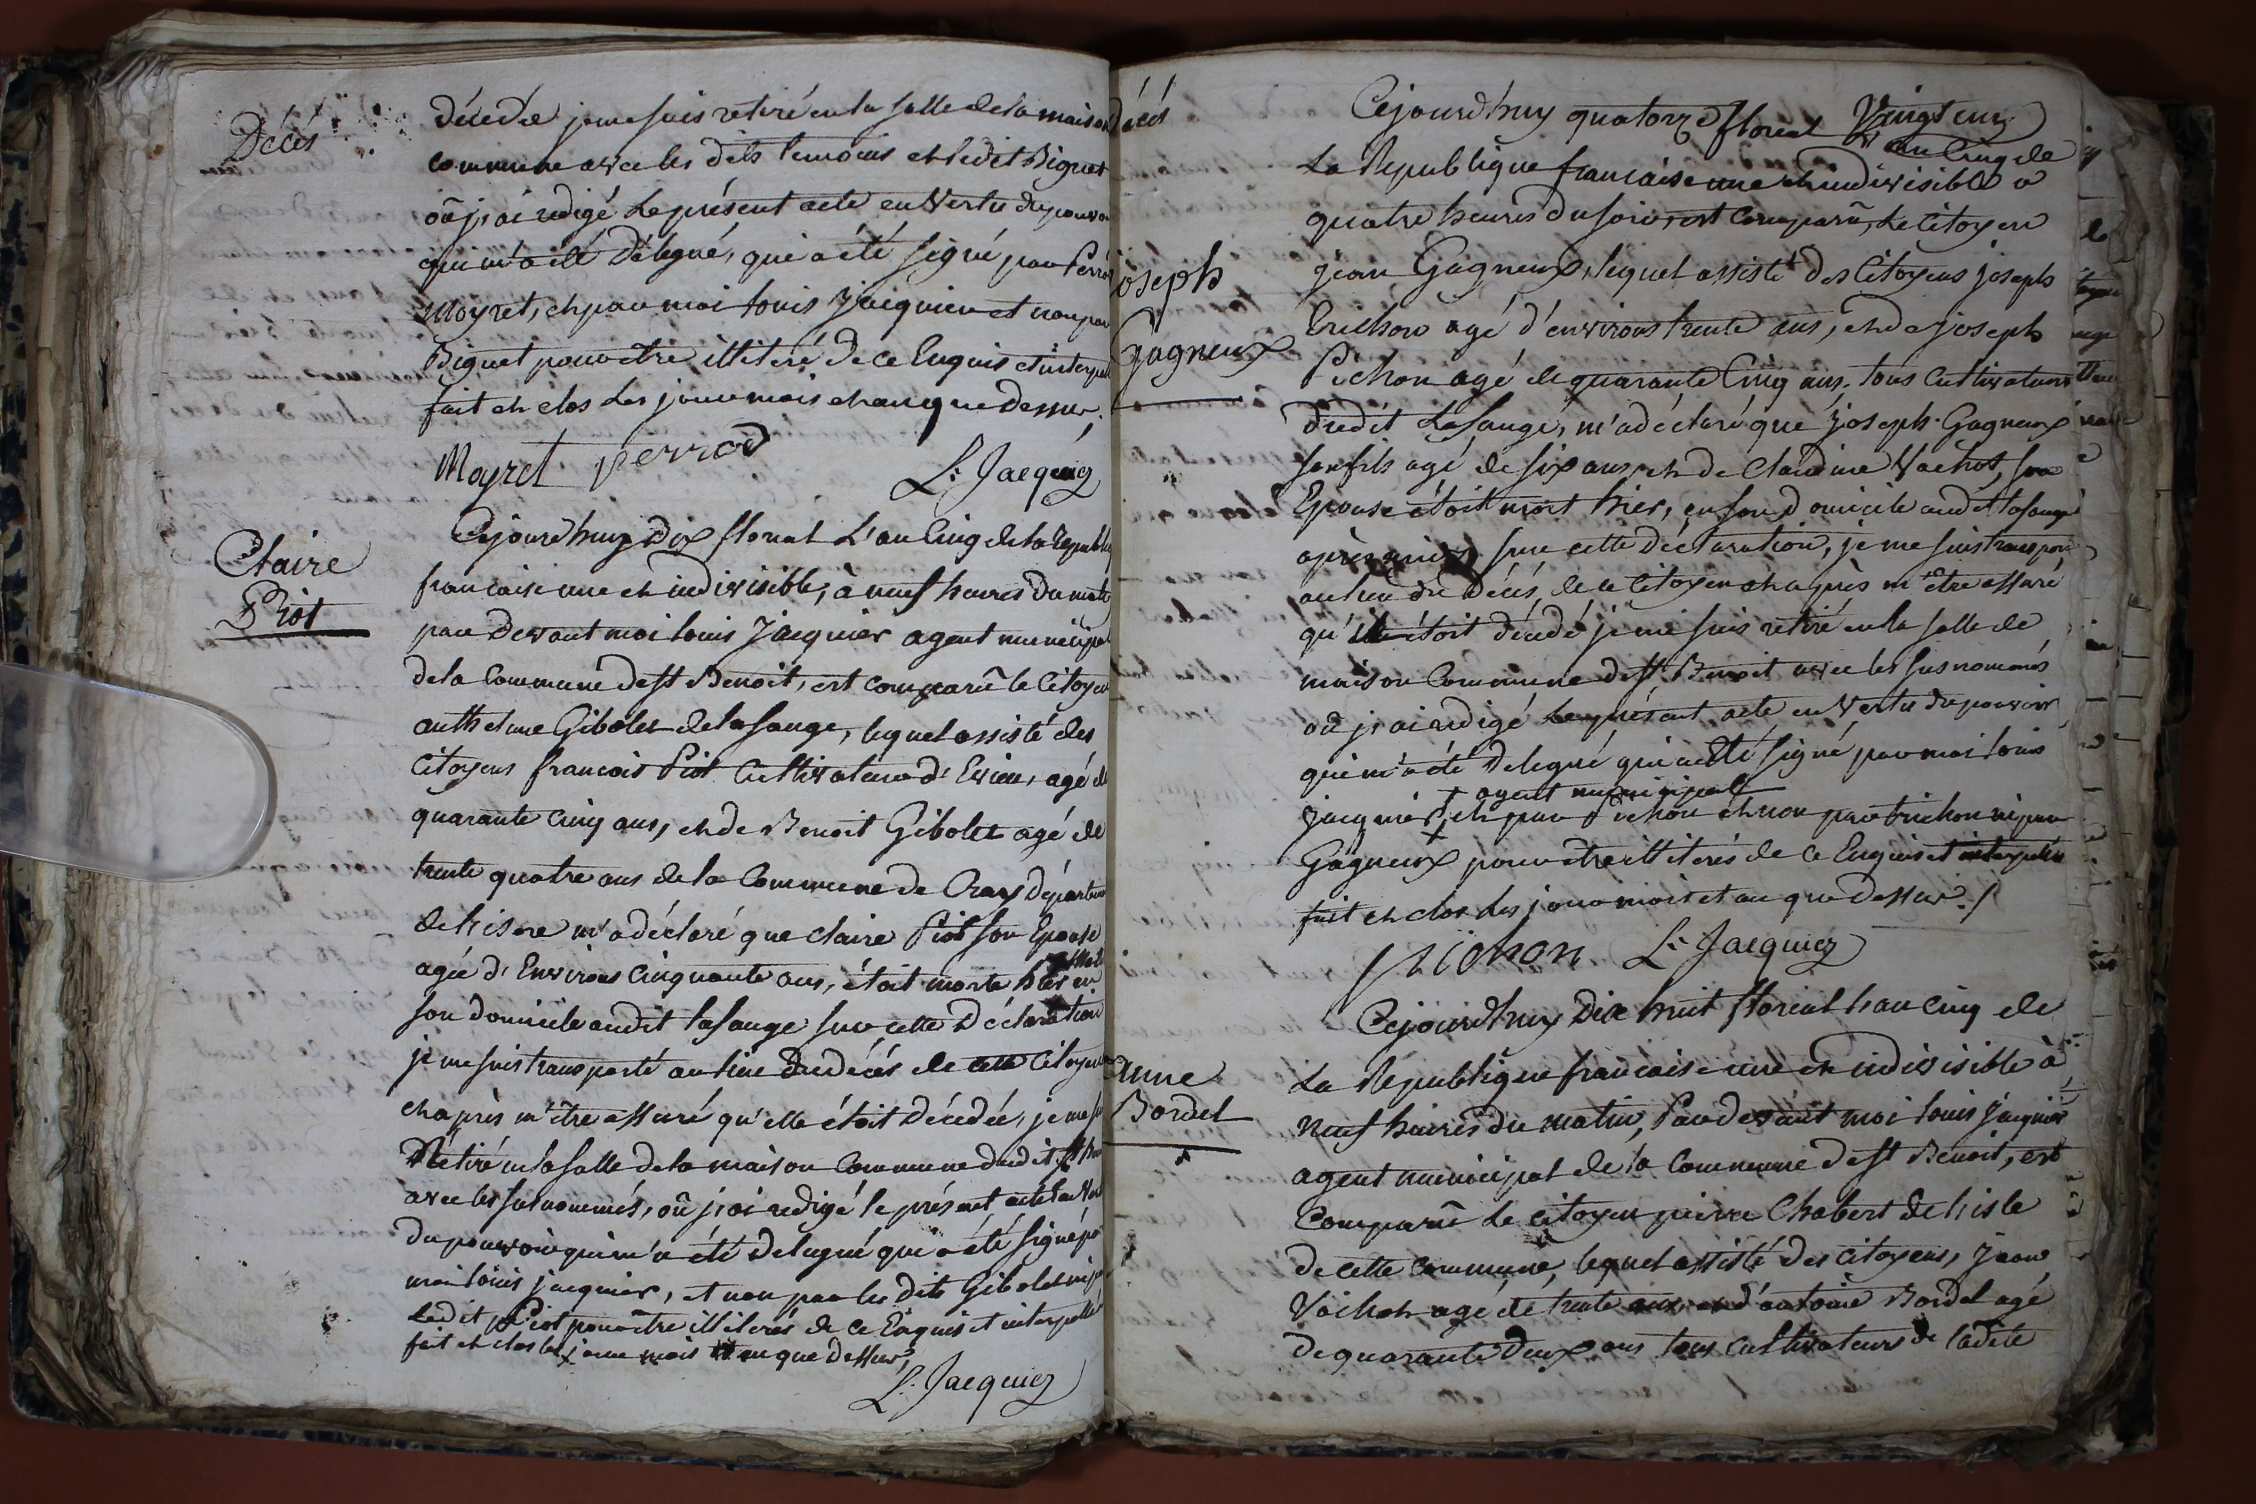 Décès
décédée je me suis retiré en la salle de la maison
commune avec les dits temoins et ledit Biguet
où j'ai redigé le présent acte en vertu du pouvoir
qui m'a été délegué, qui a été signé par Perrod
Moyret, et par moi louis Jacquier et non par
Biguet pour être illiteré de ce Enquis et interpellé
fait et clos les jour mois et an que dessus.
Moyret perrod
L. Jacquier
Claire
Piot
Cejourd'huy dix floreal L'an Cinq de la Republiq
francaise une et indivisible, à neuf heures du matin
par devant moi louis Jacquier agent municipal
de la Commune de St Benoit, est comparû le Citoyen
anthelme Gibolet de la sauge, lequel assisté des
Citoyens francois Piot Cultivateur d'Evieu, agé de
quarante cinq ans, et de Benoit Gibolet agé de
trente quatre ans de la Commune de Department
de lisere m'a déclaré que claire Piot son Epouse
agée d'Environs Cinquante ans, étoit morte hier en
son domicile audit lasauge sur cette Déclaration
je me suis transporté au lieu du décés de cette Citoyenne
et après m'être assuré qu'elle étoit Décédée, je me suis
Rétiré en la salle de la maison Commune dudit St Ben
avec les susnommés, où j'ai redigé le présent acte en vert
du pouvoir qui m'a été delegué qui a été signé par
moi louis jacquier, et non par les dits Gibolet ni par
ledit Piot pour être illiterés de ce Enquis et interpellés
fait et clos les jour mois et an que dessus,
L. Jacquier
décés
Vingt cinq
Cejourd'huy quatorze floreal
an Cinq de
La Republique francaise une et indivisible a
quatre heures du soir, est comparû, le Citoyen
joseph
Gagneux
jean Gagneux, lequel assisté des Citoyens joseph
trichon agé d'environs trente ans, et de joseph
Pichon agé de quarante Cinq ans, tous Cultivateurs
dudit LaSauge, m'a déclaré que joseph Gagneux
son fils agé de six ans, et de Claudine Vachot, son
Epouse étoit mort hier, en son domicile audit lasauge
sur cette Déclaration, je me suis transporté
au lieu du Décés, de ce Citoyen et après m'être assuré
qu'il étoit décédé je me suis retiré en la salle de
maison Commune de St Benoit avec les susnommés
où j'ai redigé le présent acte en Vertu du pouvoir
qui m'a été delegué qui a été signé par moi louis
agent municipal
jacquier, et par Pichon et non par trichon ni par
Gagneux pour être illiterés de ce Enquis et interpellés
fait et clos les jour mois et an que dessus./
pichon L. Jacquier
Anne
Bordel
Cejourd'huy Dix huit floreal l'an cinq de
La Republique francaise une et indivisible à
neuf heures du matin, Par devant moi louis jacquier
agent municipal de la Commune de St Benoit, est
Comparû le citoyen pierre Chabert de lisle
de cette Commune, lequel assisté des citoyens, jean
Vachot agé de trente ans et d'antoine Bordel agé
de quarante deux ans tous Cultivateurs de ladite